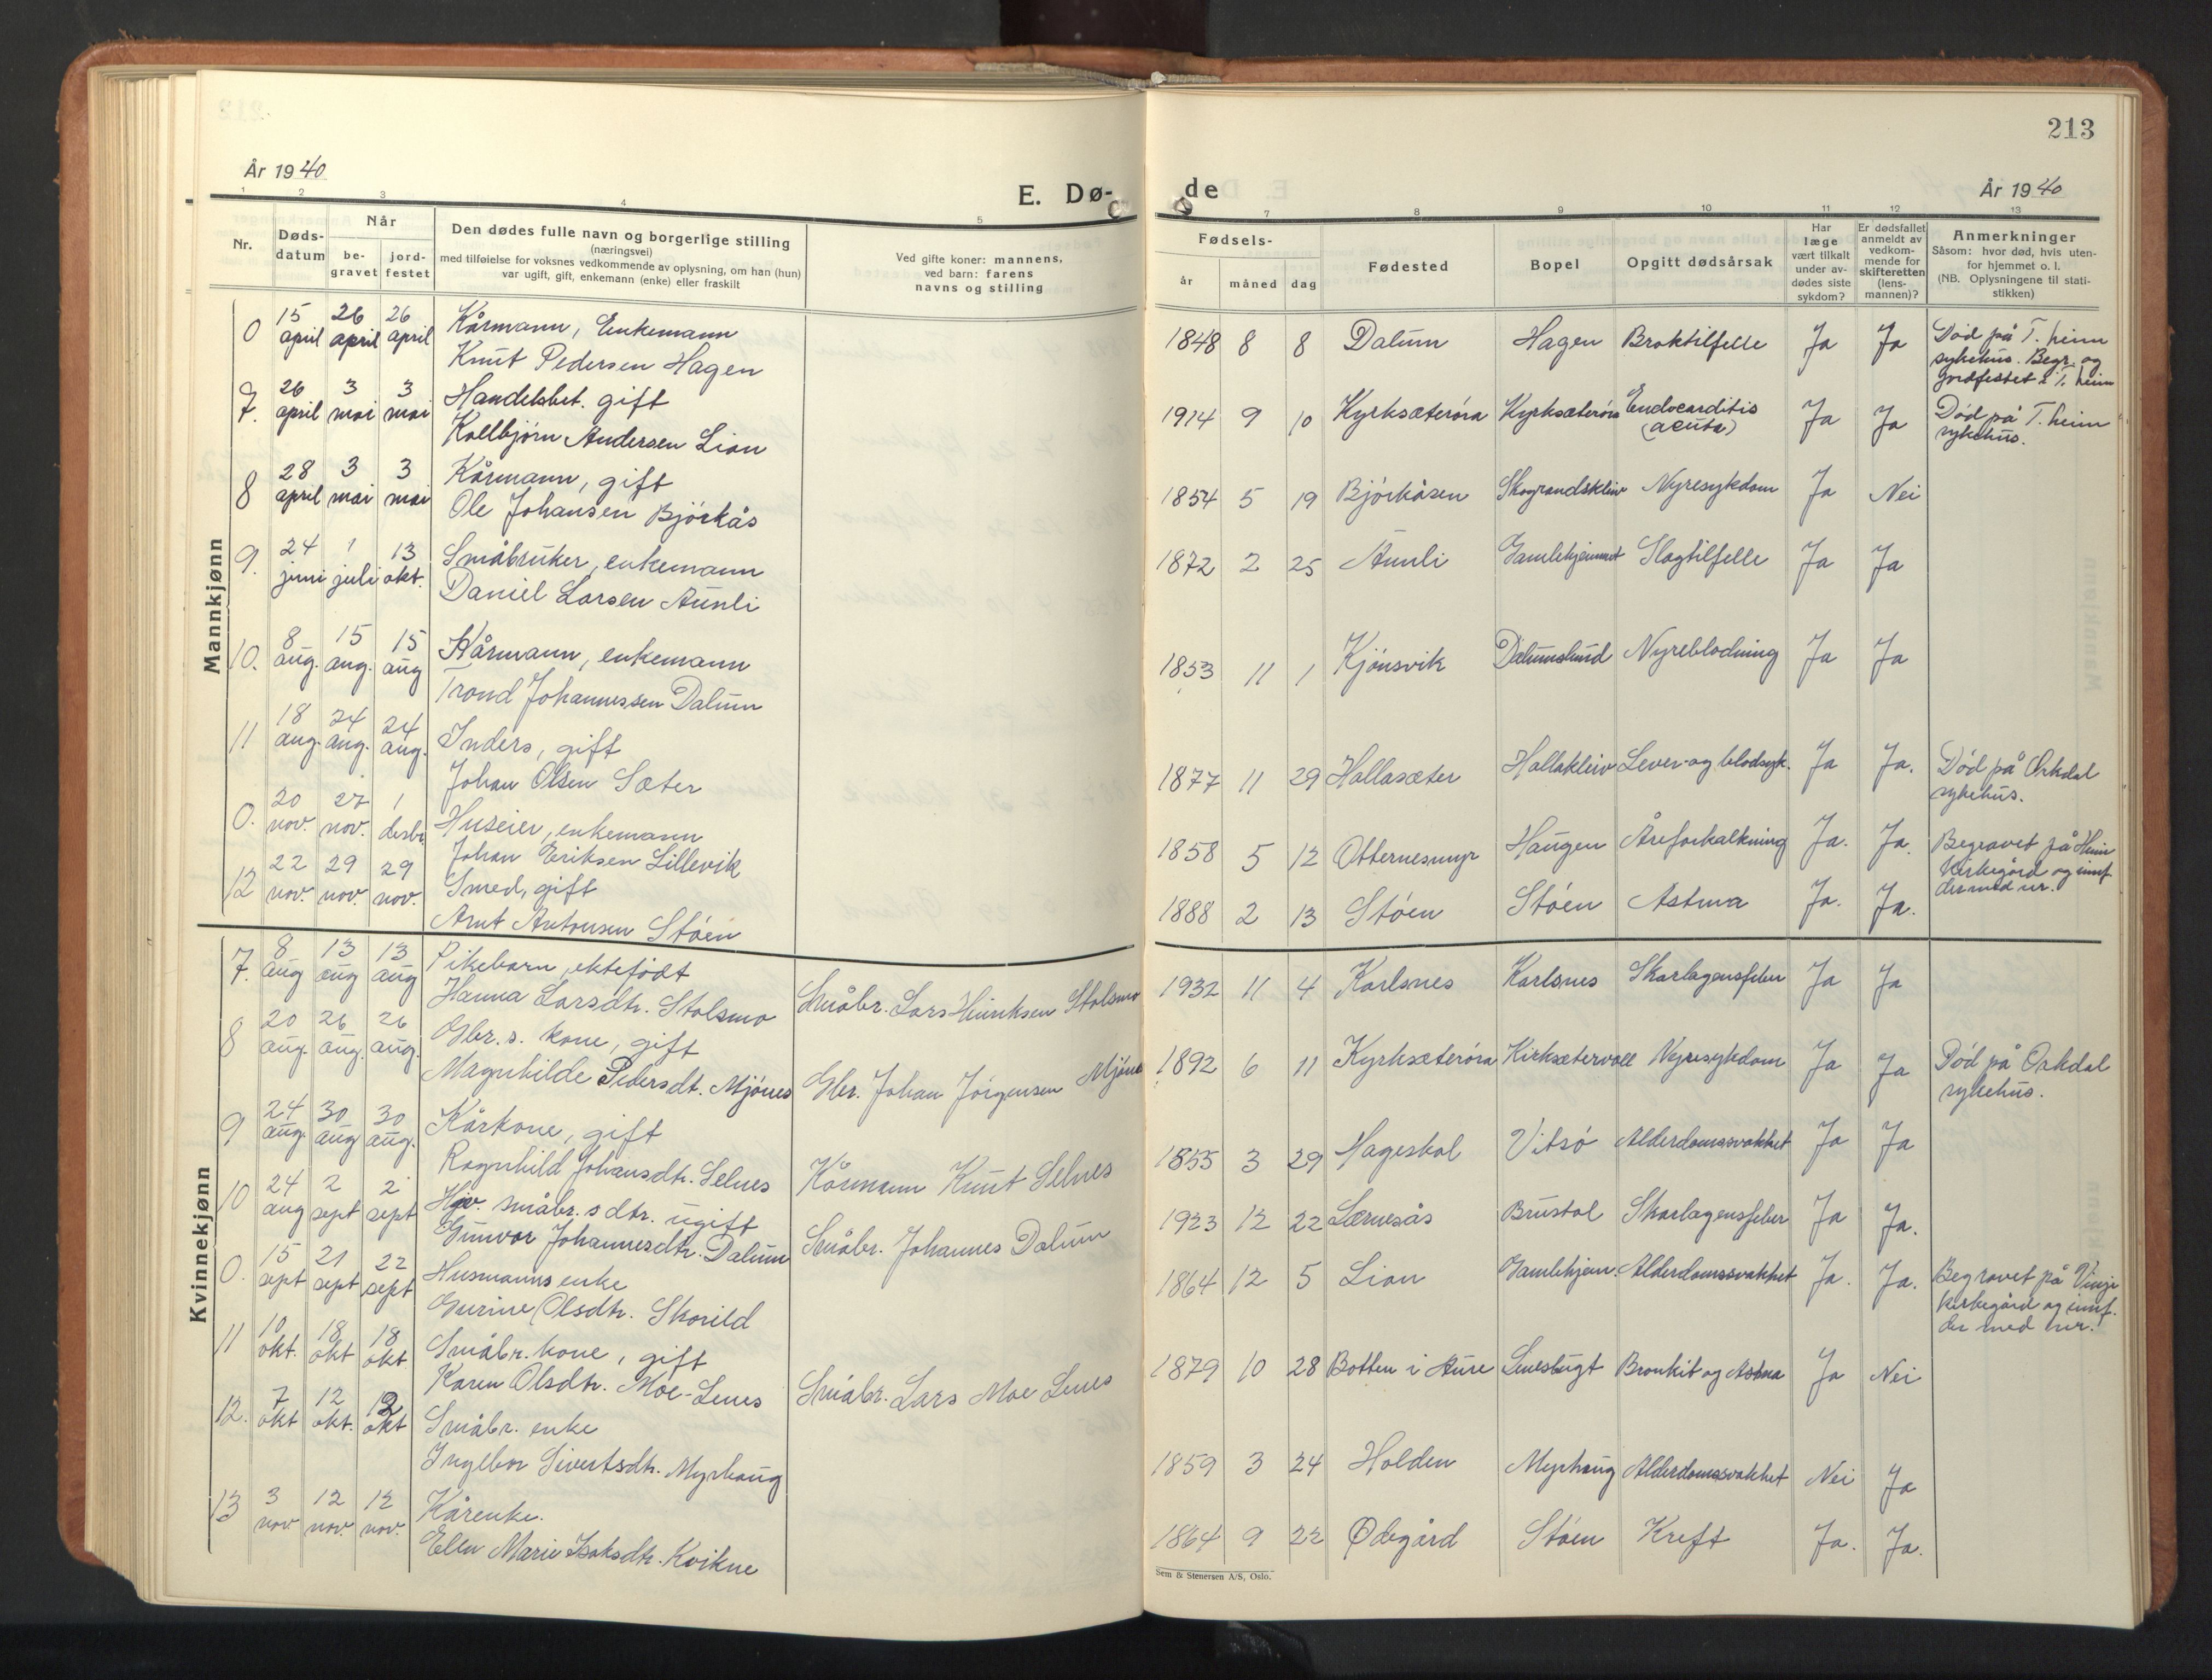 213
År 1940
E. Dø-
de
År 1940
1 2 3 4 5
7 8 9 10 11 12 13
Nr.
Døds-
datum
Når
be-
gravet
jord-
festet
Den dødes fulle navn og borgerlige stilling
(næringsvei)
med tilføielse for voksnes vedkommende av oplysning, om han (hun)
var ugift, gift, enkemann (enke) eller fraskilt
Ved gifte koner: mannens,
ved barn: farens
navns og stilling
Fødsels-
år måned dag
Fødested
Bopel
Opgitt dødsårsak
Har
læge
vært tilkalt
under av-
dødes siste
sykdom?
Er dødsfallet
anmeldt av
vedkom-
mende for
skifteretten
(lens-
mannen)?
Anmerkninger
Såsom: hvor død, hvis uten-
for hjemmet o. l.
(NB. Oplysningene til stati-
stikken)
Mannkjønn
0 15 april 26 april 26 april Kårmann, Enkemann
Knut Pedersen Hagen
1848 8 8 Dalum Hagen Broktilfelle Ja Ja Død på T.heim
sykehus. Begr. og
jordfestet i T.heim
7. 26 april 3 mai 3 mai Handelsbet. gift
Kollbjørn Andersen Lian
1914 9 10 Kyrksæterøra Kyrksæterøra Endocarditis
(acuta) Ja Ja Død på T.heim
sykehus.
8 28 april 3 mai 3 mai Kårmann, gift
Ole Johansen Bjørkås
1854 5 19 Bjørkåsen Skograndskleiv Nyresykdom Ja Nei
9. 24 juni 1 juli 13 okt. Småbruker, enkemann
Daniel Larsen Aunli
1872 2 25 Aunli Gamlehjemmet Slagtilfelle Ja Ja
10. 8 aug. 15 aug. 15 aug Kårmann, enkemann
Trond Johannessen Dalum
1853 11 1 Kjønsvik Dalumslund Nyreblødning Ja Ja
11 18 aug. 24 aug. 24 aug. Inders, gift
Johan Olsen Sæter
1877 11 29 Hallasæter Hallakleiv Lever- og blodsyk. Ja Ja. Død på Orkdal
sykehus.
0. 20 nov. 27 nov. 1 desbr. Huseier, enkemann
Johan Eriksen Lillevik
1858 5 12 Otternesmyr Haugen Åreforkalkning Ja. Ja. Begravet på Heim
kirkegård og innf.
der med nr.
12 22 nov. 29 nov. 29 nov. Smed, gift
Arnt Antonsen Støen
1888 2 13 Støen Støen Astma Ja. Ja.
Kvinnekjønn
7. 8 aug 13 aug 13 aug Pikebarn, ektefødt
Hanna Larsdtr. Stolsmo Småbr. Lars Henriksen Stolsmo
1932 11 4 Karlsnes Karlsnes Skarlagensfeber Ja Ja
8 20 aug. 26 aug. 26 aug. Gbr.s. kone, gift
Magnhilde Pedersdt. Mjønes Gbr. Johan Jørgensen Mjønes
1892 6 11 Kyrksæterøra Kirksætervoll Nyresykdom Ja Ja Død på Orkdal
sykehus.
9 24 aug. 30 aug 30 aug. Kårkone, gift
Ragnhild Johansdtr. Selnes Kårmann Knut Selnes
1855 3 29 Hageskal Vitsø Alderdomssvakhet Ja Ja
10 24 aug 2 sept 2 sept Hjv. småbr.s dtr. ugift
Gunvor Johannesdtr. Dalum Småbr. Johannes Dalum
1923 12 22 Lernesås Brustol Skarlagensfeber Ja Ja.
0. 15 sept 21 sept 22 sept Husmanns enke
Gurine Olsdtr. Skorild
1864 12 5 Lian Gamlehjem. Alderdomssvakhet Ja. Ja. Begravet på Vinje
kirkegård og innf.
der med nr.
11 10 okt. 18 okt 18 okt Småbr. kone, gift
Karen Olsdtr. Moe-Lenes Småbr. Lars Moe Lenes
1879 10 28 Botten i Aure Lenesbugt Bronkit og Astma Ja Nei
12. 7 okt 12 okt. 12 okt Småbr. enke
Ingebor Sivertsdtr. Myrhaug
1859 3 24 Holden Myrhaug Alderdomssvakhet Nei Ja
13 3 nov 12 nov. 12 nov. Kårenke.
Ellen Marie Isaksdtr. Kvikne
1864 9 22 Ødegård Støen Kreft Ja. Ja.
Sem & Stenersen A/S, Oslo.